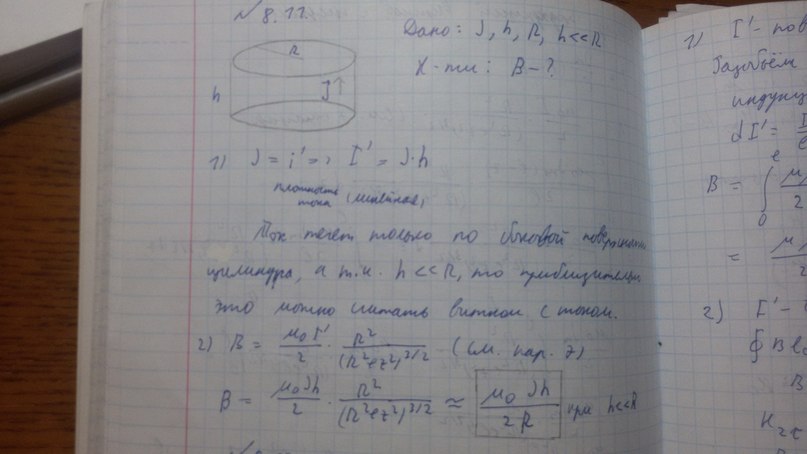 № 8.11.
Дано: J, h, R, h<<R
Х-ти: B-?
R
h
J↑
1) J = i' => I' = J·h
плотность
тока (линейная)
Ток течет только по боковой поверхности
цилиндра, а т.к. h<<R, то приблизительно
это можно считать витком с током.
2) B = μ₀I'/2 · R²/(R²+z²)^3/2 (см. пар. 7)
B = μ₀Jh/2 · R²/(R²+z²)^3/2 ≈ μ₀Jh/2R при h<<R
1) I' - пов
Разобьём
индукц
dI' =
B =
=
2) I' -
∮ B
B